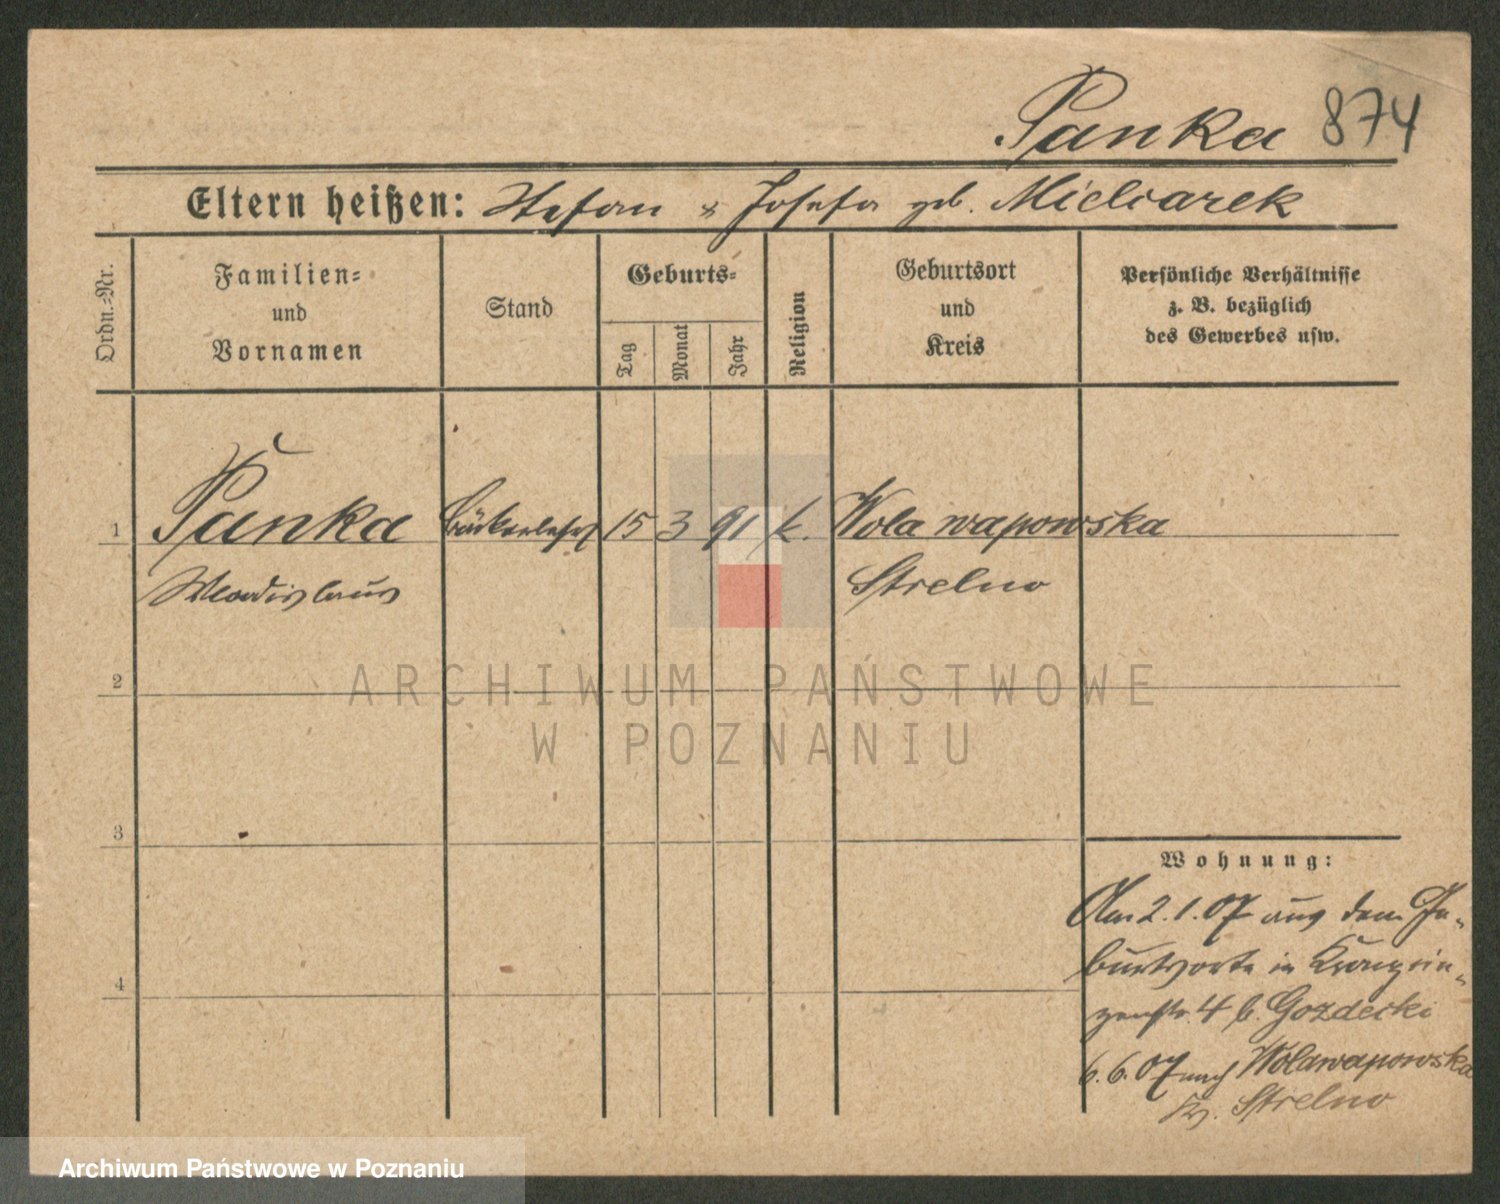 Panka 874
Eltern heißen: Stefan & Josefa geb. Mielcarek
Ordn.-Nr.
Familien-
und
Vornamen
Stand
Geburts-
Tag
Monat
Jahr
Religion
Geburtsort
und
Kreis
Persönliche Verhältnisse
z. B. bezüglich
des Gewerbes usw.
1 Panka Bäckerlehrl 15 3 91 k. Wola wapowska
Wladislaus Strelno
2
ARCHIWUM PAŃSTWOWE
W POZNANIU
3
Wohnung:
Am 2.1.07 aus dem Ge-
burtsorte in Kronprin-
4
zenstr. 4 b. Gozdecki
6.6.07 nach Wolawapowska
Kr. Strelno
Archiwum Państwowe w Poznaniu